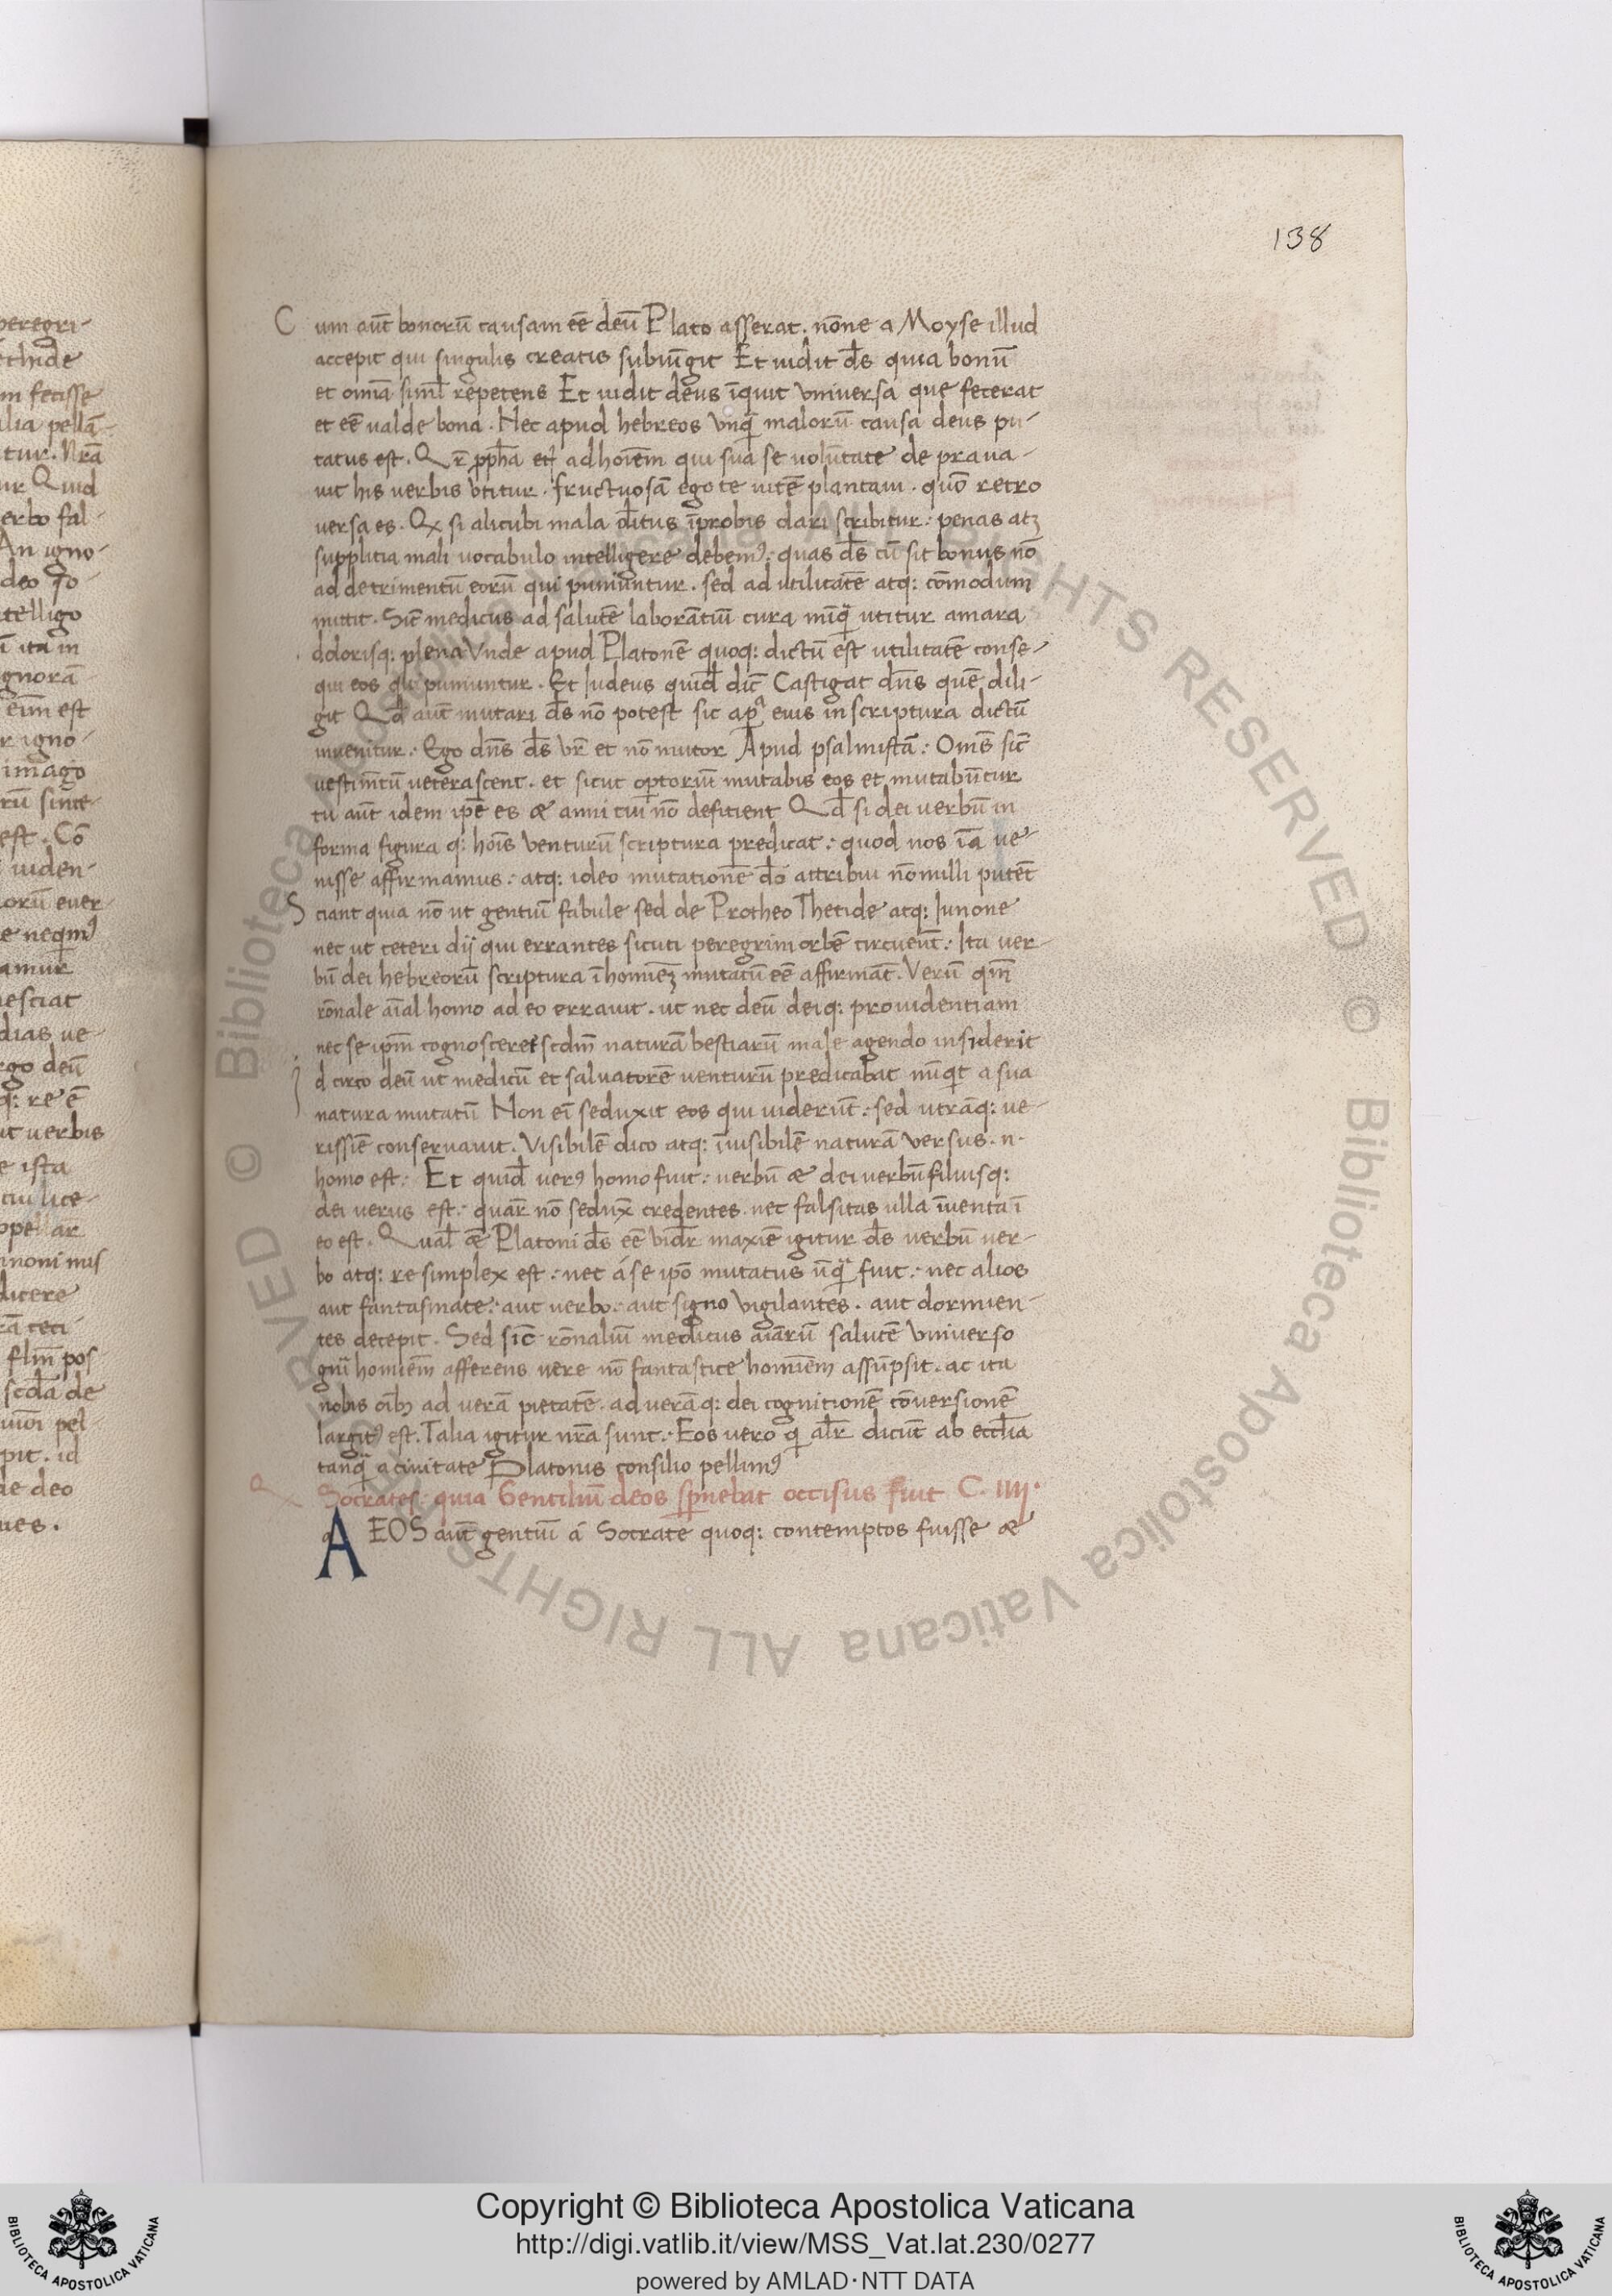 138
Cum aūt bonorū causam eē deū Plato asserat. nōne a Moyse illud
accepit qui singulis creatis subiūgit Et uidit ds̄ quia bonū
et omīa siml̄ repetens Et uidit deus īquit vniversa que fecerat
et eē ualde bona. Nec apud hebreos vnq̄ malorū causa deus pu-
tatus est. ad hoīem qui sua se uolūtate de praua-
uit his uerbis vtitur. fructuosā ego te uitē plantaui. quō retro
versa es. si alicubi mala īprobis dari scribitur: penas atꝫ
supplitia mali uocabulo intelligere debemꝰ: quas ds̄ cū sit bonus nō
ad detrimentū eorū qui puniuntur. sed ad utilitatē atq: cōmodum
mittit. Sic̄ medicus ad salutē laborātiū cura utitur amara
dolorisq: plena Vnde apud Platonē quoq: dictū est utilitatē conse-
qui eos qui puniuntur. Et Iudeus quid̄ dic̄ Castigat dn̄s quē dili-
git Qd̄ aūt mutari ds̄ nō potest sic in scriptura dictū
inuenitur: Ego dn̄s ds̄ vr̄ et nō mutor Apud psalmistā: Oms̄ sic̄
vestim̄tū veterascent. et sicut optoriū mutabis eos et mutabūtur
tu aūt idem ipē es & anni tui nō defitient Qd̄ si dei uerbū in
forma figura q: hoīs venturū scriptura predicat: quod nos īā ue-
nisse affirmamus: atq: ideo mutationē dō attribui nōnulli putēt
Sciant quia nō ut gentiū fabule sed de Protheo Thetide atq: Iunone
nec ut ceteri dij qui errantes sicuti peregrini orbē circueūt: Ita ver-
bū dei hebreorū scriptura ī homīeꝫ mutatū eē affirmāt. Verū qm̄
rōnale aīal homo ad eo errauit. ut nec deū deiq: prouidentiam
nec se ipm̄ cognosceret scdm̄ naturā bestiarū male agendo insiderit
Id circo deū ut medicū et saluatorē uenturū predicabat a sua
natura mutatū Non eī seduxit eos qui uiderūt: sed utrāq: ue-
rissīe conseruauit. Visibilē dico atq: īuisibilē naturā versus. n.
homo est: Et quid̄ uerꝰ homo fuit: uerbū & dei uerbū filiusq:
dei uerus est: quar̄ nō sedux̄ credentes. nec falsitas ulla īuenta ī
eo est. Qual̄ Platoni ds̄ eē vid̄r maxīe igitur ds̄ uerbū uer-
bo atq: re simplex est: nec á se ipō mutatus ūq̄ fuit: nec alios
aut fantasmate: aut uerbo: aut signo vigilantes. aut dormien-
tes decepit. Sed sic̄ rōnaliū medicus aīarū salutē vniuerso
homiēm afferens uere nō fantastice homīem assūpsit. ac ita
nobis oībꝫ ad uerā pietatē. ad uerāq: dei cognitionē cōuersionē
largitꝰ est. Talia igitur nr̄a sunt: Eos uero q̄ al̄r dicūt ab eccl̄ia
tanq̄ a ciuitate Platonis consilio pellimꝰ
Socrates: quia Gentiliū deos sp̄nebat occisus fuit C. IIII.
AEOS aūt gentiū á Socrate quoq: contemptos fuisse &
Copyright © Biblioteca Apostolica Vaticana
http://digi.vatlib.it/view/MSS_Vat.lat.230/0277
powered by AMLAD·NTT DATA